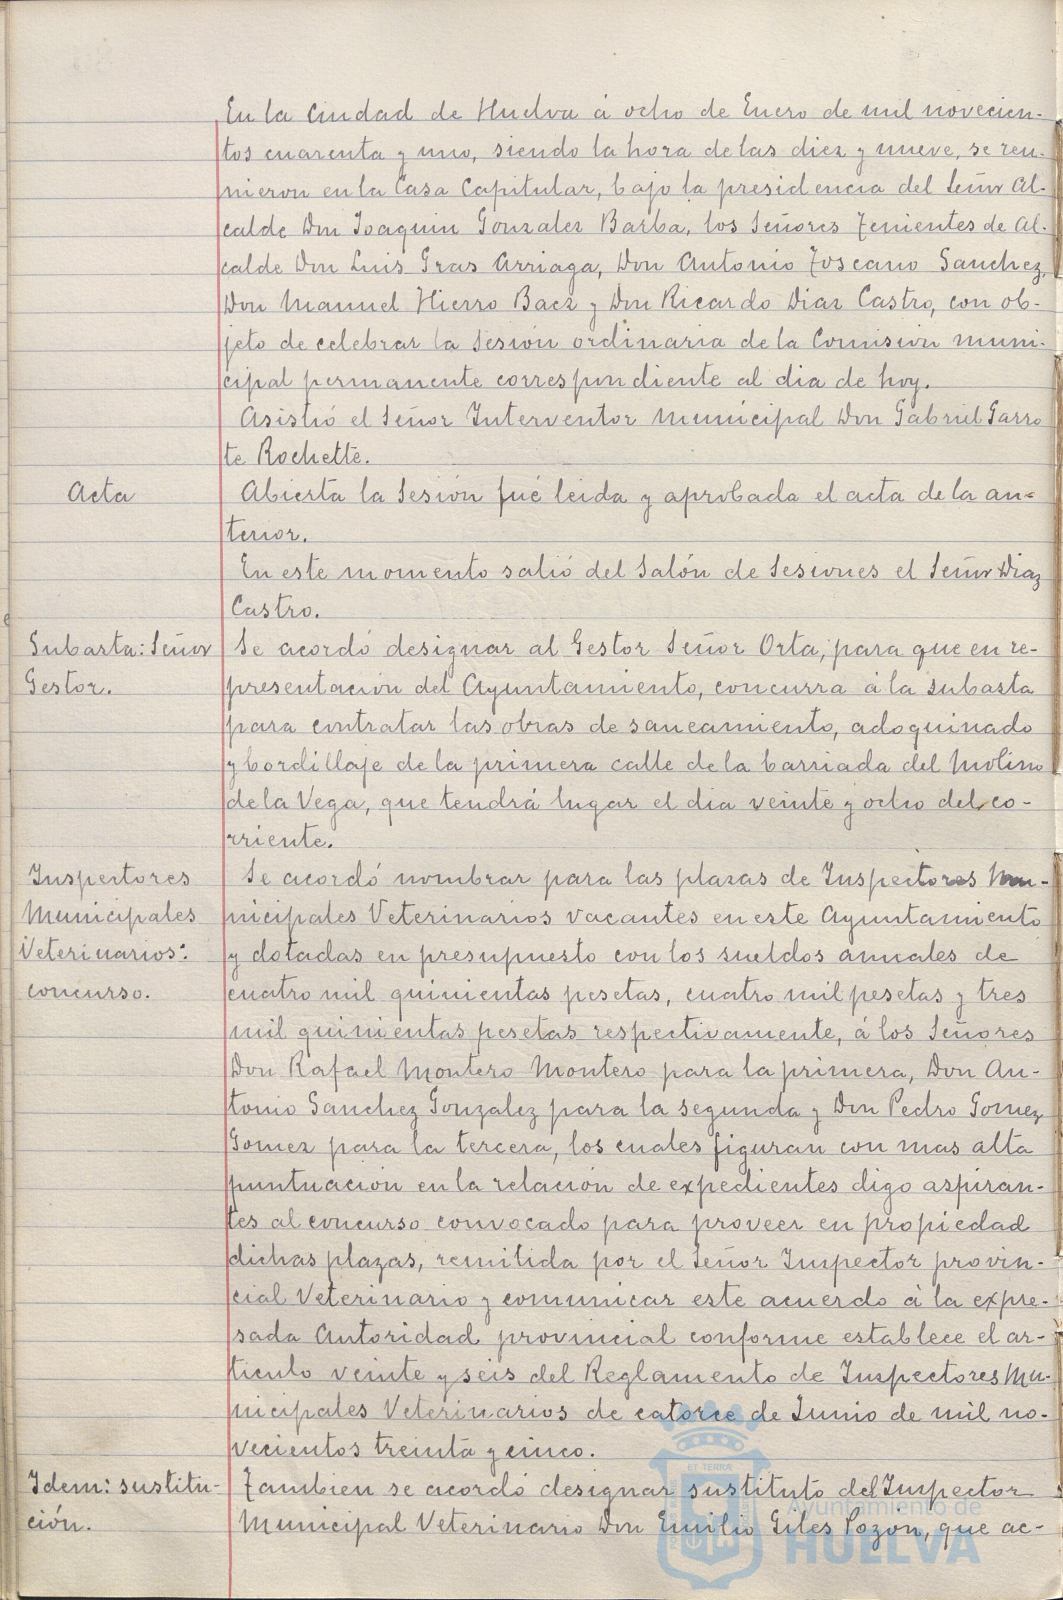 En la Ciudad de Huelva á ocho de Enero de mil novecien-
tos cuarenta y uno, siendo la hora de las diez y nueve, se reu-
nieron en la Casa Capitular, bajo la presidencia del Señor Al-
calde Don Joaquin Gonzalez Barba, los Señores Tenientes de Al-
calde Don Luis Gras Arriaga, Don Antonio Toscano Sanchez,
Don Manuel Hierro Baez y Don Ricardo Diaz Castro, con ob-
jeto de celebrar la Sesión ordinaria de la Comisión muni-
cipal permanente correspondiente al dia de hoy.
Asistió el Señor Interventor municipal Don Gabriel Garro
te Rochette.
Acta
Abierta la Sesión fué leida y aprobada el acta de la an-
terior.
En este momento salió del Salón de Sesiones el Señor Diaz
Castro.
Subasta: Señor
Gestor.
Se acordó designar al Gestor Señor Orta, para que en re-
presentación del Ayuntamiento, concurra á la subasta
para contratar las obras de saneamiento, adoquinado
y bordillaje de la primera calle de la barriada del Molino
de la Vega, que tendrá lugar el dia veinte y ocho del co-
rriente.
Inspectores
Municipales
Veterinarios:
concurso.
Se acordó nombrar para las plazas de Inspectores Mu-
nicipales Veterinarios vacantes en este Ayuntamiento
y dotadas en presupuesto con los sueldos anuales de
cuatro mil quinientas pesetas, cuatro mil pesetas y tres
mil quinientas pesetas respectivamente, á los Señores
Don Rafael Montero Montero para la primera, Don An-
tonio Sanchez Gonzalez para la segunda y Don Pedro Gomez
Gomez para la tercera, los cuales figuran con mas alta
puntuación en la relación de expedientes digo aspiran-
tes al concurso convocado para proveer en propiedad
dichas plazas, remitida por el Señor Inspector provin-
cial Veterinario y comunicar este acuerdo á la expre-
sada Autoridad provincial conforme establece el ar-
ticulo veinte y seis del Reglamento de Inspectores Mu-
nicipales Veterinarios de catorce de Junio de mil no-
vecientos treinta y cinco.
Idem: sustitu-
ción.
Tambien se acordó designar sustituto del Inspector
Municipal Veterinario Don Emilio Giles Pozón, que ac-
ET TERRÆ
Ayuntamiento de
HUELVA